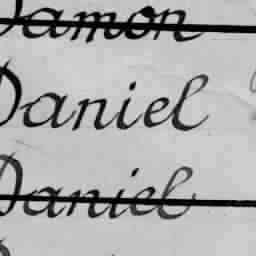 Damon
Daniel
Daniel